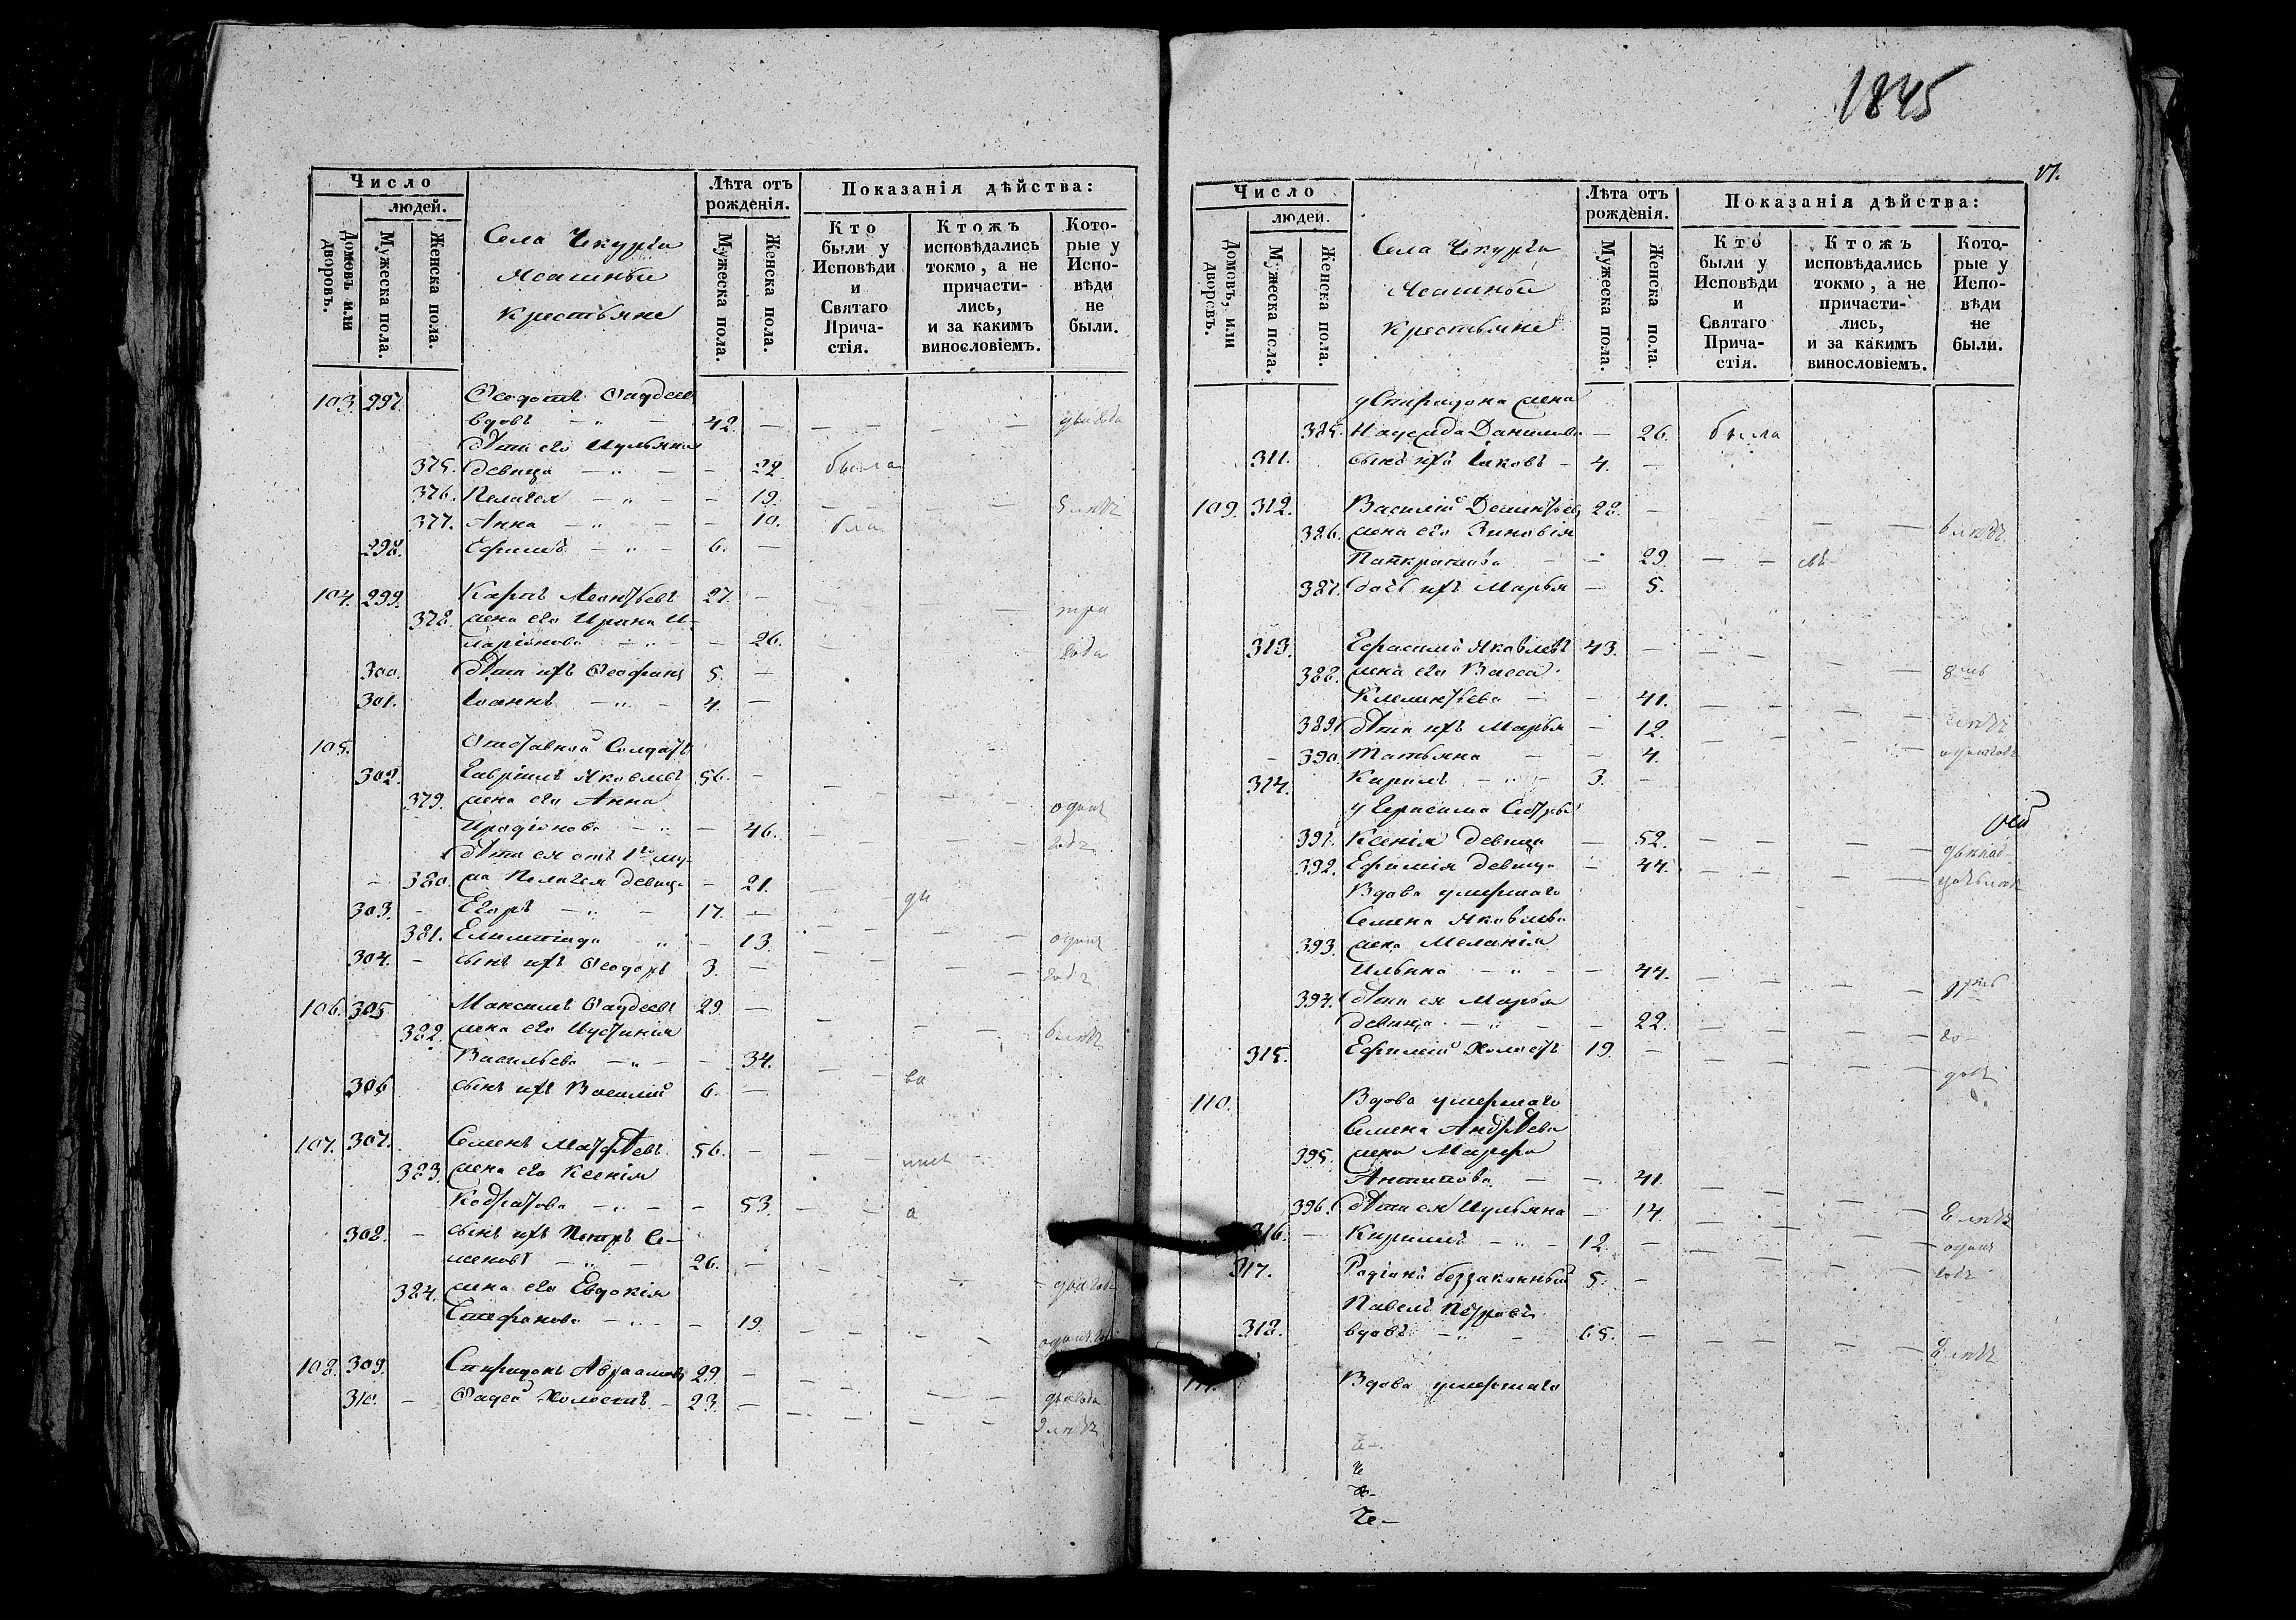 1845
Число
людей.
Домовъ или дворовъ.
Мужеска пола.
Женска пола.
Села Чекурча
Ясашныи
Крестьяне
Лѣта отъ рожденія.
Мужеска пола.
Женска пола.
Показанія дѣйства:
Кто были у Исповѣди и Святаго Прича-стія.
Ктожъ исповѣдались токмо, а не причасти-лись, и за какимъ винословіемъ.
Кото-рые у Испо-вѣди не были.
103. 297. Ѳеодотъ Ѳаддеевъ
вдовъ — „ — 42. два года
дѣти его Иульяна
375. девица — „ — 22. была
376. Пелагея — „ — 19.
377. Анна — „ — 10.
298. Ефимъ — „ — 6. —
104. 299. Карпъ Леонтьевъ 27. —
378. жена его Ирина И- три
ларіонова — „ — 26. года
300. дѣти ихъ Ѳеофанъ 5. —
301. Іоаннъ — „ — 4. —
105. Отставной Солдатъ
302. Гавріилъ Яковлевъ 56. —
379. жена его Анна одинъ
Иродіонова — „ — 46. годъ
дѣти ея отъ 1го му-
380. жа Пелагея девица — 21.
303. Егоръ — „ — 17. —
381. Елимпіада — „ — 13. одинъ
304. сынъ ихъ Ѳеодоръ 3. — годъ
106. 305 Максимъ Ѳаддеевъ 29 —
382. жена его Иустинія
Васильева — „ — 34.
306 сынъ ихъ Василій 6. —
107. 307. Семенъ Матфѣевъ 56. —
383. жена его Ксенія
Кодратова — „ — 53.
308. сынъ ихъ Петръ Се-
меновъ — „ — 26. —
384. жена его Евдокія два года
Стефанова — „ — 19.
108. 309. Спиридонъ Авраамовъ 29 —
310. Ѳадей Холостъ — 23. — два года
17.
Число
людей.
Домовъ, или дворовъ.
Мужеска пола.
Женска пола.
Села Чекурча
Ясашныи
Крестьяне
Лѣта отъ рожденія.
Мужеска пола.
Женска пола.
Показанія дѣйства:
Кто были у Исповѣди и Святаго Прича-стія.
Ктожъ исповѣдались токмо, а не причасти-лись, и за какимъ винословіемъ.
Кото-рые у Испо-вѣди не были.
у Спиридона жена
385. Данилова — 26. была
311. сынъ ихъ Іаковъ — 4. —
109. 312. Василій Дементьевъ 28. —
386. жена его Зиновія
Панкратова — 29.
387. дочь ихъ Марья — 5.
313. Герасимъ Яковлевъ 43. —
388. жена его Васса
Климентьева — 41.
389. дѣти ихъ Марья — 12.
390. Татьяна — 4.
314. Кирилъ — „ — 3. —
у Герасима Сестры
391. Ксенія девица — 52.
392. Ефимія девица — 44.
Вдова умершаго
Семена Яковлева
393. жена Меланія
Ильина — „ — 44.
394. дѣти ея Марья
девица — „ — 22.
315. Ефимій Холостъ 19. —
110. Вдова умершаго
Семена Андрѣева
395. жена Марфа
Антипова — 41.
396. дѣти ея Иульяна — 14.
316. Кирилъ — „ — 12. — одинъ
317. Родіонъ беззаконный 5. — годъ
Павелъ Петровъ
318. вдовъ — „ — 65. —
111. Вдова умершаго
Че—